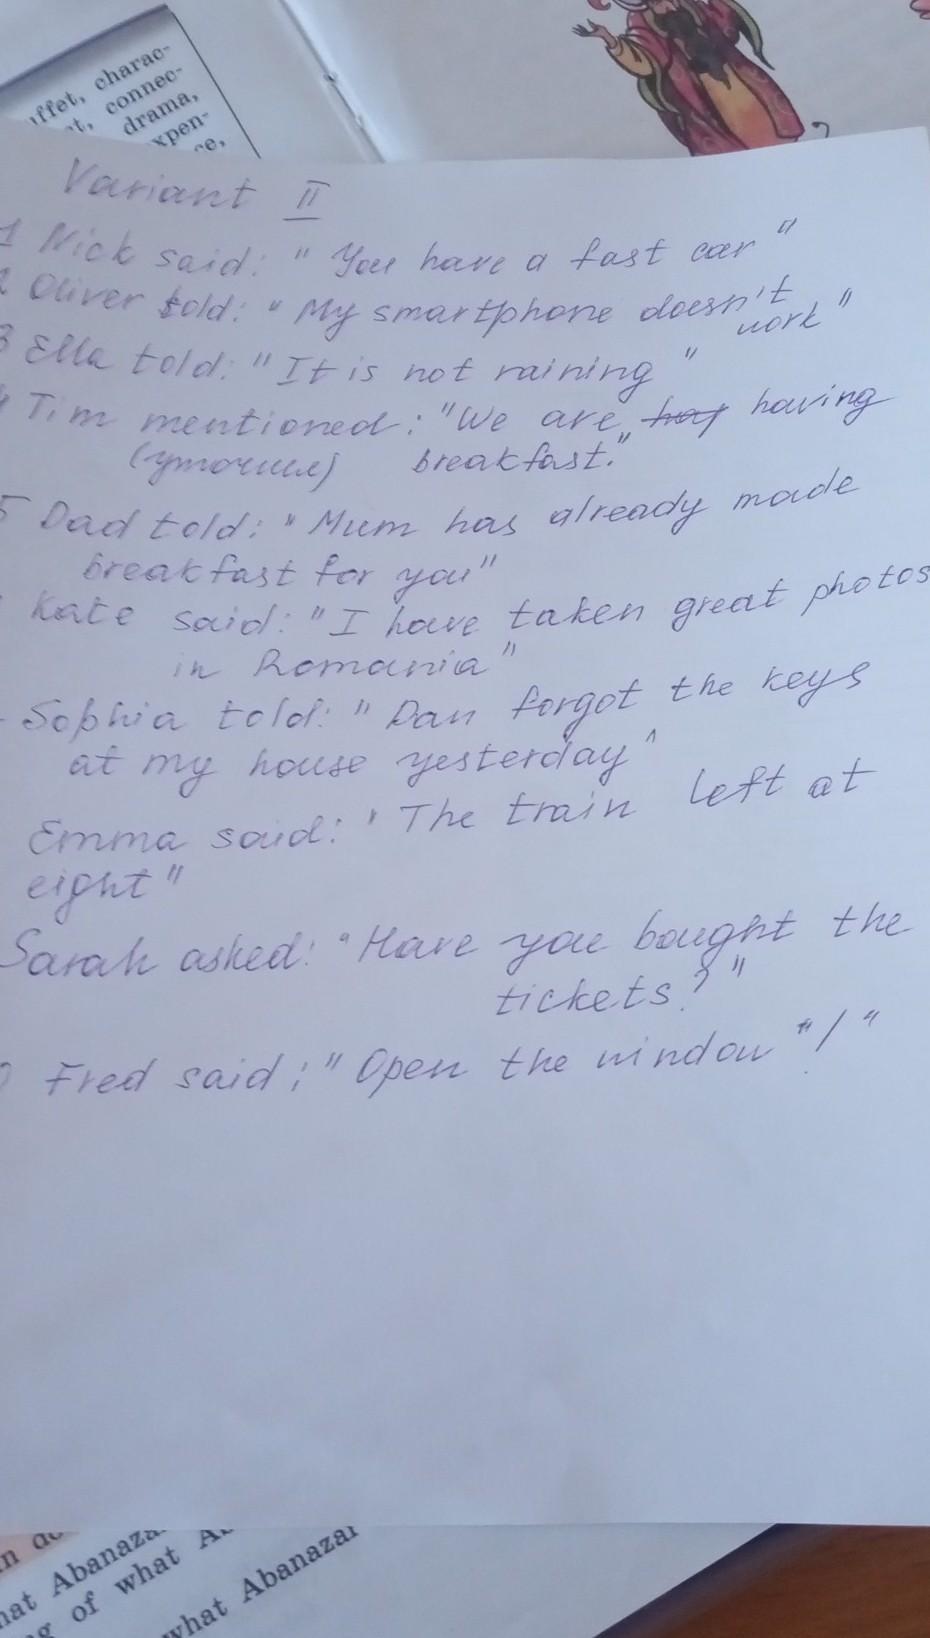 uffet, charac-
connec-
drama,
xpen-
ce,
Variant II
1 Nick said: " You have a fast car "
2 Oliver told: " My smartphone doesn't
work "
3 Ella told: " It is not raining "
4 Tim mentioned: "We are hav having
(уточнил) breakfast."
5 Dad told: " Mum has already made
breakfast for you"
Kate said: "I have taken great photos
in Romania"
Sophia told: " Dan forgot the keys
at my house yesterday"
Emma said: " The train left at
eight"
Sarah asked: " Have you bought the
tickets?"
0 Fred said: " Open the window "! "
n do
hat Abanaza
g of what A
what Abanazar